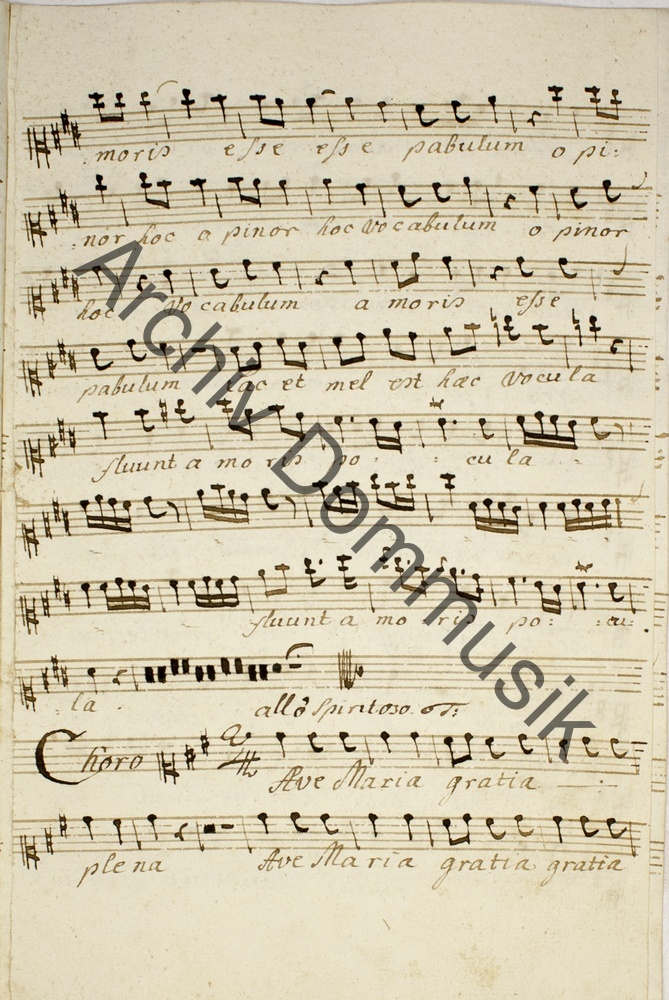 moris esse esse pabulum o pi:
nor hoc o pinor hoc Vocabulum o pinor
hoc Vocabulum a moris esse
pabulum lac et mel est hæc Vocula
fluunt a mo ris po : : cu la
fluunt a mo ris po : : cu :
la . allo Spiritoso
Choro 2/4 Ave Maria gratia
plena Ave Maria gratia gratia
Archiv Dommusik